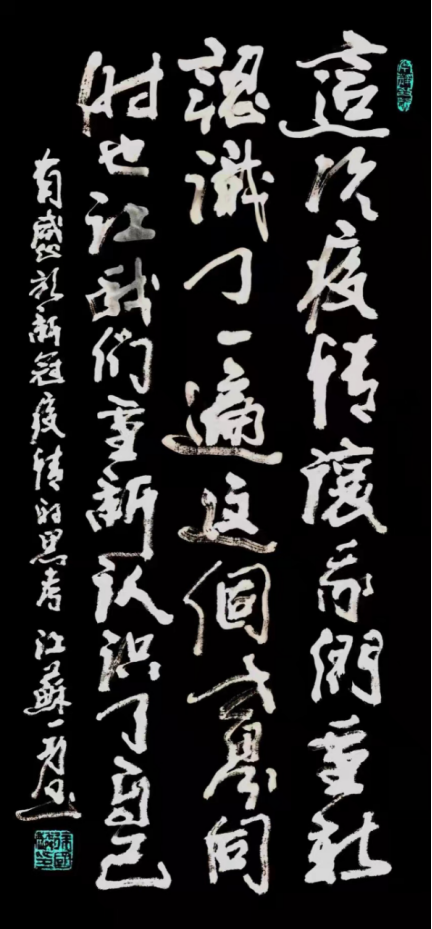 這次疫情讓我們重新
認識了一遍这個世界同
时也让我們重新认识了自己
有感於新冠疫情的思考 江蘇一